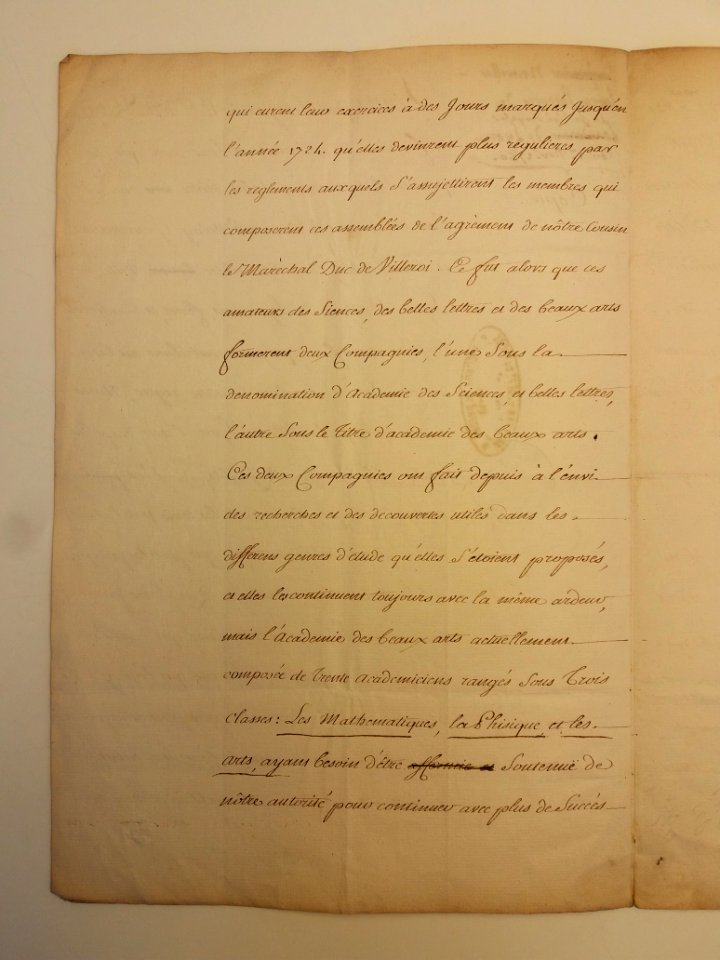 qui eurent leurs exercices à des Jours marqués Jusqu'en
l'année 1724. qu'elles devinrent plus regulieres par
les reglements auxquels s'assujettirent les membres qui
composerent ces assemblées de l'agrèment de nôtre Cousin
le Maréchal Duc de Villeroi. Ce fut alors que ces
amateurs des Siences, des belles lettres et des beaux arts
formerent deux Compagnies, l'une Sous la
denomination d'Academie des Sciences, et belles lettres,
l'autre Sous le Titre d'academie des beaux arts.
Ces deux Compagnies ont fait depuis à l'envi
des recherches et des decouvertes utiles dans les
differens genres d'étude qu'elles s'étoient proposés,
et elles les continuent toujours avec la même ardeur,
mais l'Academie des beaux arts actuellement
composée de Trente academiciens rangés Sous Trois
Classes: Les Mathematiques, la Phisique, et les
arts, ayant besoin d'être Soutenüe de
nôtre autorité pour continuer avec plus de Succès